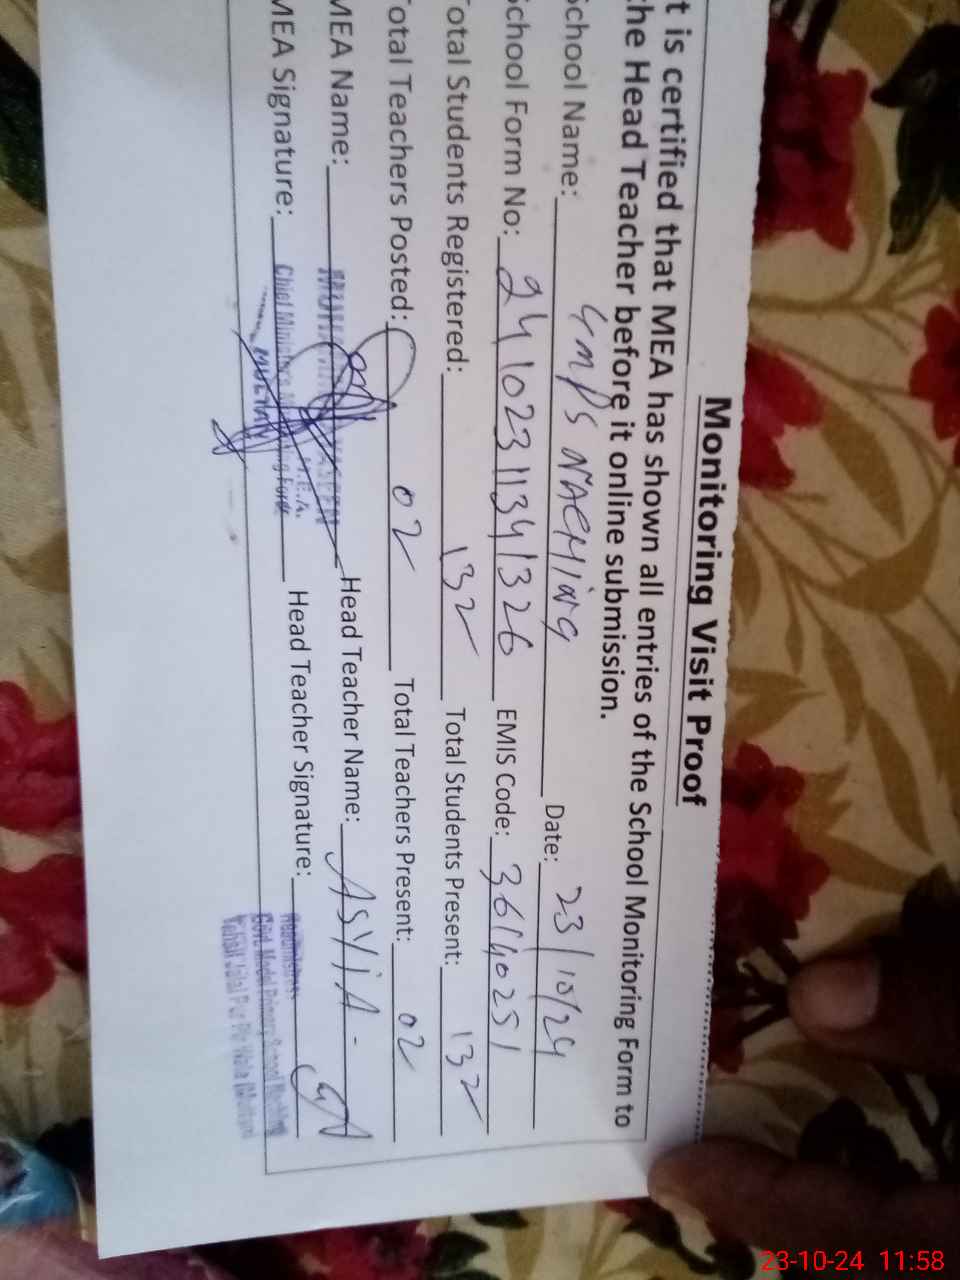 Monitoring Visit Proof
t is certified that MEA has shown all entries of the School Monitoring Form to
he Head Teacher before it online submission.
School Name: GMPS Date: 23/10/24
School Form No: 24102311341326 EMIS Code: 36140251
Total Students Registered: 132 Total Students Present: 132
Total Teachers Posted: 02 Total Teachers Present: 02
MEA Name: Head Teacher Name: ASYiA -
MEA Signature: Head Teacher Signature:
M.E.A.
Chief Minister's Monitoring Force
MULTAN
Govt. Model Primary School
Tehsil Jalal Pur Pir Wala (Multan)
23-10-24 11:58